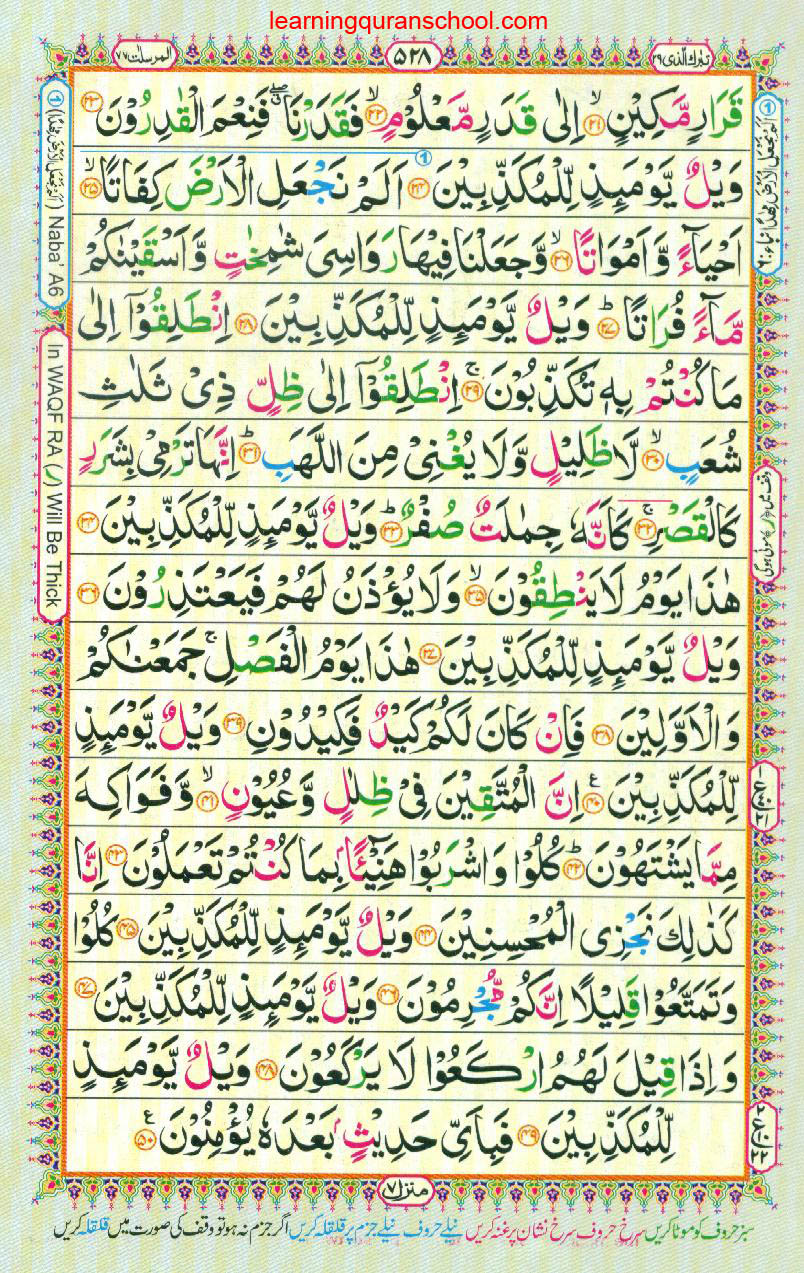 learningquranschool.com
تبٰرك الّذى ٢٩
٥٢٨
المرسلات ٧٧
قَرَارٍ مَّكِيْنٍ ۙ‏﴿۲۱﴾ اِلٰى قَدَرٍ مَّعْلُوْمٍ ۙ‏﴿۲۲﴾ فَقَدَرْنَا ۖۗ فَنِعْمَ الْقٰدِرُوْنَ ﴿۲۳﴾
وَيْلٌ يَّوْمَئِذٍ لِّلْمُكَذِّبِيْنَ ﴿۲۴﴾ اَلَمْ نَجْعَلِ الْاَرْضَ كِفَاتًا ۙ‏﴿۲۵﴾
اَحْيَآءً وَّ اَمْوَاتًا ۙ‏﴿۲۶﴾ وَّ جَعَلْنَا فِيْهَا رَوَاسِىَ شٰمِخٰتٍ وَّ اَسْقَيْنٰكُمْ
مَّآءً فُرَاتًا ؕ‏﴿۲۷﴾ وَيْلٌ يَّوْمَئِذٍ لِّلْمُكَذِّبِيْنَ ﴿۲۸﴾ اِنْطَلِقُوْۤا اِلٰى
مَا كُنْتُمْ بِهٖ تُكَذِّبُوْنَ ۚ‏﴿۲۹﴾ اِنْطَلِقُوْۤا اِلٰى ظِلٍّ ذِىْ ثَلٰثِ
شُعَبٍ ۙ‏﴿۳۰﴾ لَّا ظَلِيْلٍ وَّ لَا يُغْنِىْ مِنَ اللَّهَبِ ؕ‏﴿۳۱﴾ اِنَّهَا تَرْمِىْ بِشَرَرٍ
كَالْقَصْرِ ۚ‏﴿۳۲﴾ كَاَنَّهٗ جِمٰلَتٌ صُفْرٌ ؕ‏﴿۳۳﴾ وَيْلٌ يَّوْمَئِذٍ لِّلْمُكَذِّبِيْنَ ﴿۳۴﴾
هٰذَا يَوْمُ لَا يَنْطِقُوْنَ ۙ‏﴿۳۵﴾ وَ لَا يُؤْذَنُ لَهُمْ فَيَعْتَذِرُوْنَ ﴿۳۶﴾
وَيْلٌ يَّوْمَئِذٍ لِّلْمُكَذِّبِيْنَ ﴿۳۷﴾ هٰذَا يَوْمُ الْفَصْلِ ۚ جَمَعْنٰكُمْ
وَ الْاَوَّلِيْنَ ﴿۳۸﴾ فَاِنْ كَانَ لَكُمْ كَيْدٌ فَكِيْدُوْنِ ﴿۳۹﴾ وَيْلٌ يَّوْمَئِذٍ
لِّلْمُكَذِّبِيْنَ ﴿۴۰﴾ ع اِنَّ الْمُتَّقِيْنَ فِىْ ظِلٰلٍ وَّ عُيُوْنٍ ۙ‏﴿۴۱﴾ وَّ فَوَاكِهَ
مِمَّا يَشْتَهُوْنَ ؕ‏﴿۴۲﴾ كُلُوْا وَ اشْرَبُوْا هَنِيْٓئًا ۢ بِمَا كُنْتُمْ تَعْمَلُوْنَ ﴿۴۳﴾ اِنَّا
كَذٰلِكَ نَجْزِى الْمُحْسِنِيْنَ ﴿۴۴﴾ وَيْلٌ يَّوْمَئِذٍ لِّلْمُكَذِّبِيْنَ ﴿۴۵﴾ كُلُوْا
وَ تَمَتَّعُوْا قَلِيْلًا اِنَّكُمْ مُّجْرِمُوْنَ ﴿۴۶﴾ وَيْلٌ يَّوْمَئِذٍ لِّلْمُكَذِّبِيْنَ ﴿۴۷﴾
وَ اِذَا قِيْلَ لَهُمُ ارْكَعُوْا لَا يَرْكَعُوْنَ ﴿۴۸﴾ وَيْلٌ يَّوْمَئِذٍ
لِّلْمُكَذِّبِيْنَ ﴿۴۹﴾ فَبِاَىِّ حَدِيْثٍۭ بَعْدَهٗ يُؤْمِنُوْنَ ﴿۵۰﴾ ع
Naba' A6
In WAQF RA (ر) Will Be Thick
منزل ٧
سبز حروف کو موٹا کریں سرخ حروف سرخ نشان پر غنہ کریں نیلے حروف نیلے جزم پر قلقلہ کریں اگر جزم نہ ہو تو وقف کی صورت میں قلقلہ کریں